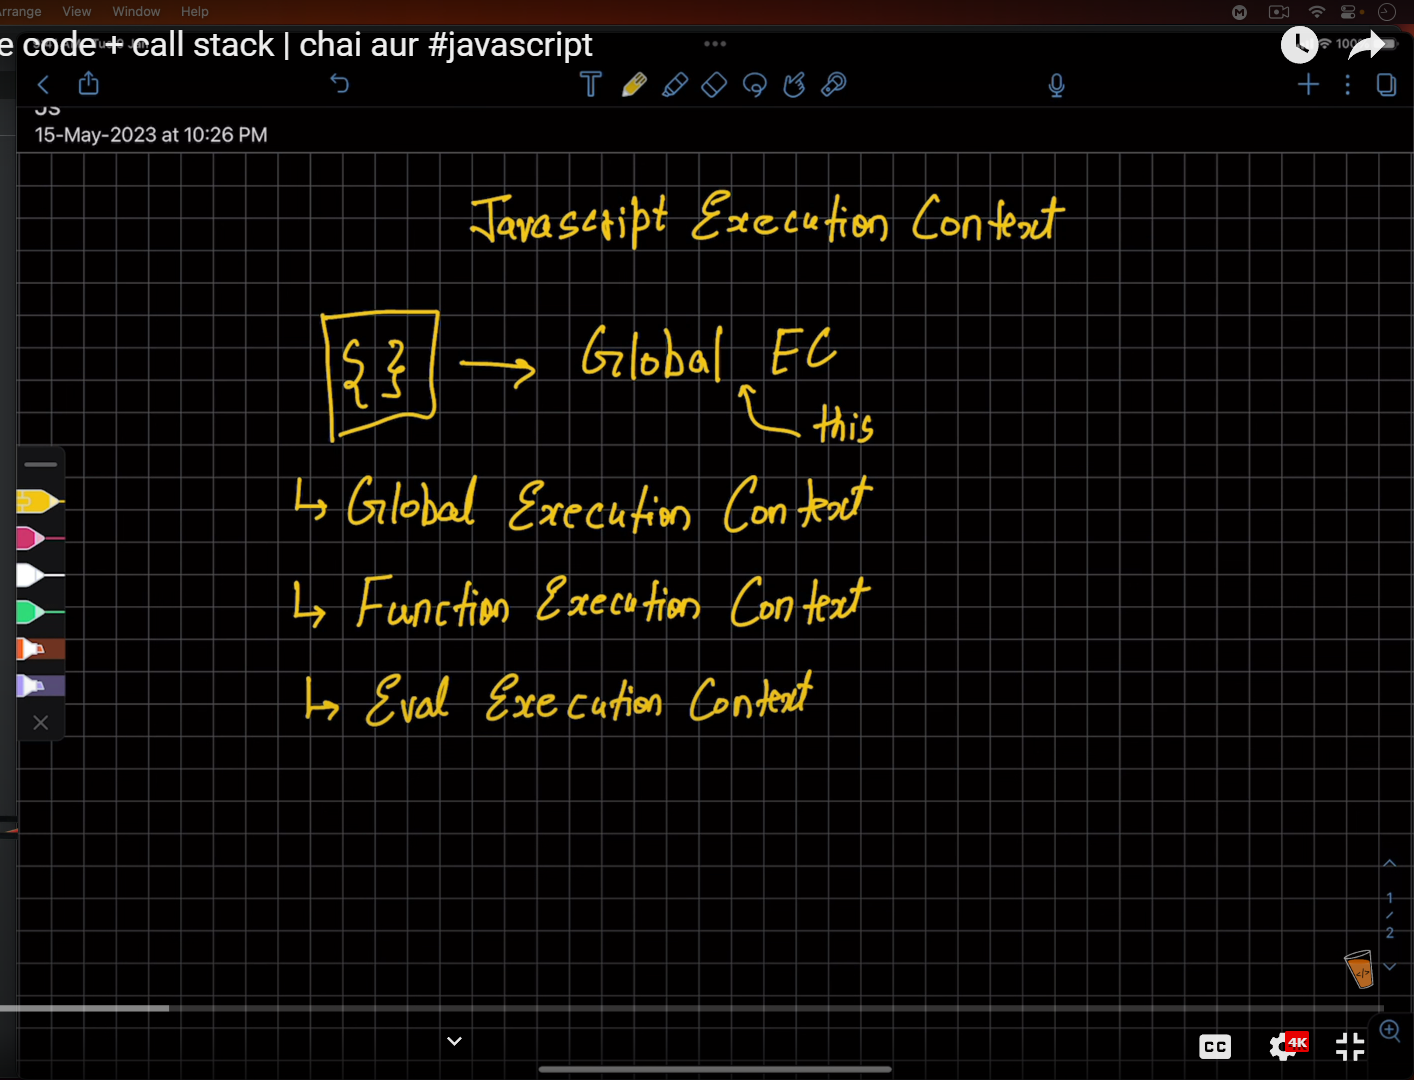 rrange View Window Help
e code + call stack | chai aur #javascript
JS
15-May-2023 at 10:26 PM
Javascript Execution Context
{ } → Global EC
this
↳ Global Execution Context
↳ Function Execution Context
↳ Eval Execution Context
1
/
2
</>
CC 4K